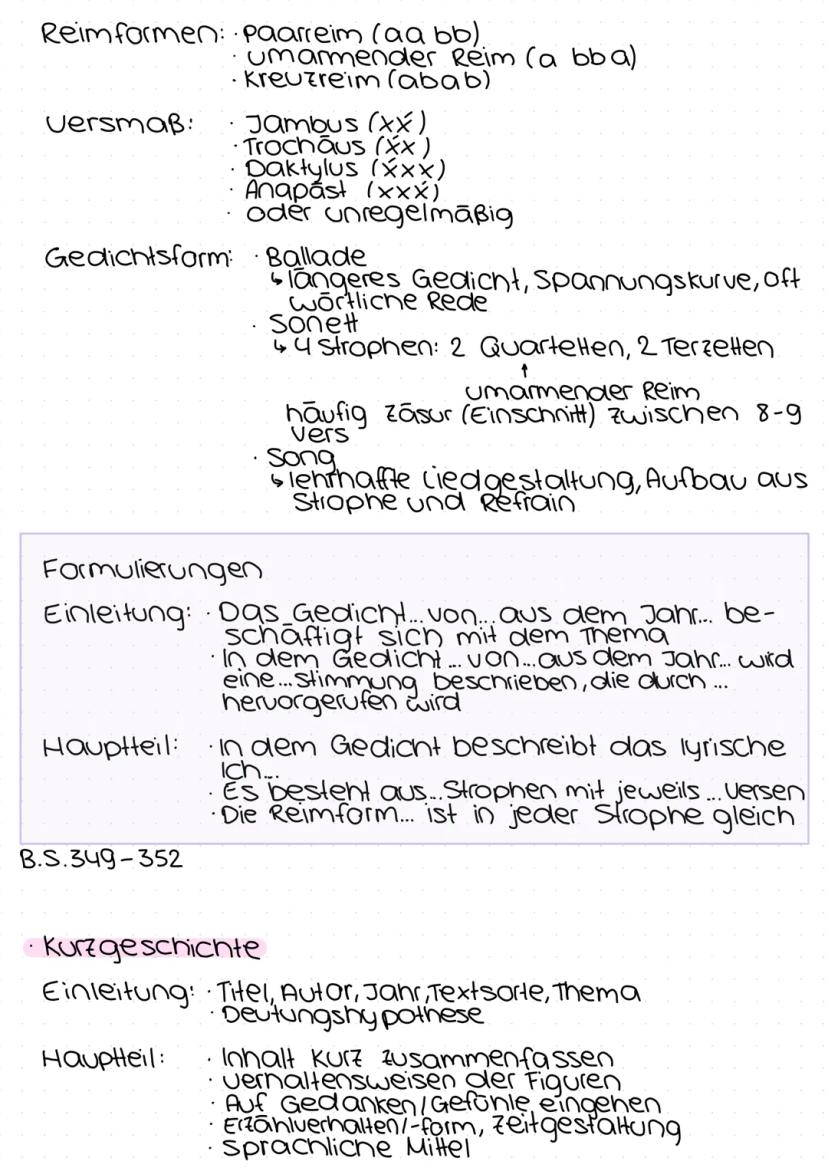 Reimformen: · Paarreim (aa bb)
· umarmender Reim (a bb a)
· Kreuzreim (abab)
Versmaß: · Jambus (xx́)
· Trochäus (x́x)
· Daktylus (x́xx)
· Anapäst (xxx́)
· oder unregelmäßig
Gedichtsform: · Ballade
↳ längeres Gedicht, Spannungskurve, oft
wörtliche Rede
· Sonett
↳ 4 Strophen: 2 Quartetten, 2 Terzetten
↑
umarmender Reim
häufig Zäsur (Einschnitt) zwischen 8-9
Vers
· Song
↳ lehrhafte Liedgestaltung, Aufbau aus
Strophe und Refrain
Formulierungen
Einleitung: · Das Gedicht... von... aus dem Jahr... be-
schäftigt sich mit dem Thema
· In dem Gedicht... von... aus dem Jahr... wird
eine... Stimmung beschrieben, die durch...
hervorgerufen wird
Hauptteil: · In dem Gedicht beschreibt das lyrische
Ich...
· Es besteht aus... Strophen mit jeweils... Versen
· Die Reimform... ist in jeder Strophe gleich
B.S.349-352
· Kurzgeschichte
Einleitung: · Titel, Autor, Jahr, Textsorte, Thema
· Deutungshypothese
Hauptteil: · Inhalt kurz zusammenfassen
· Verhaltensweisen der Figuren
· Auf Gedanken/Gefühle eingehen
· Erzählverhalten/-form, Zeitgestaltung
· Sprachliche Mittel